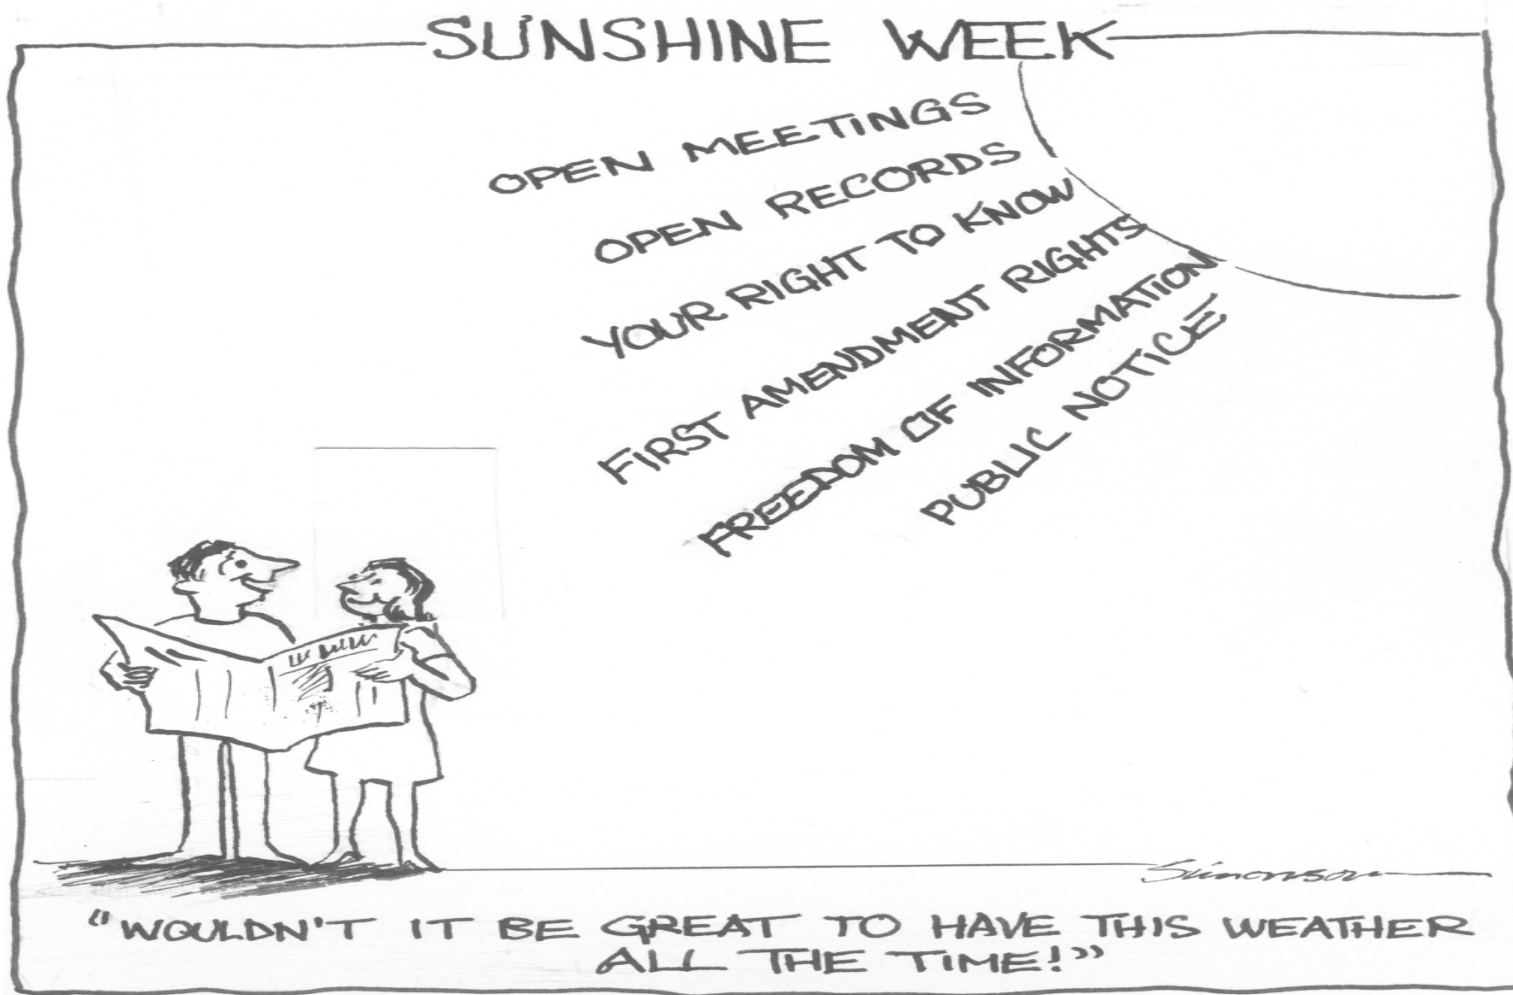 SUNSHINE WEEK
OPEN MEETINGS
OPEN RECORDS
YOUR RIGHT TO KNOW
FIRST AMENDMENT RIGHTS
FREEDOM OF INFORMATION
PUBLIC NOTICE
Simonson
"WOULDN'T IT BE GREAT TO HAVE THIS WEATHER
ALL THE TIME!"